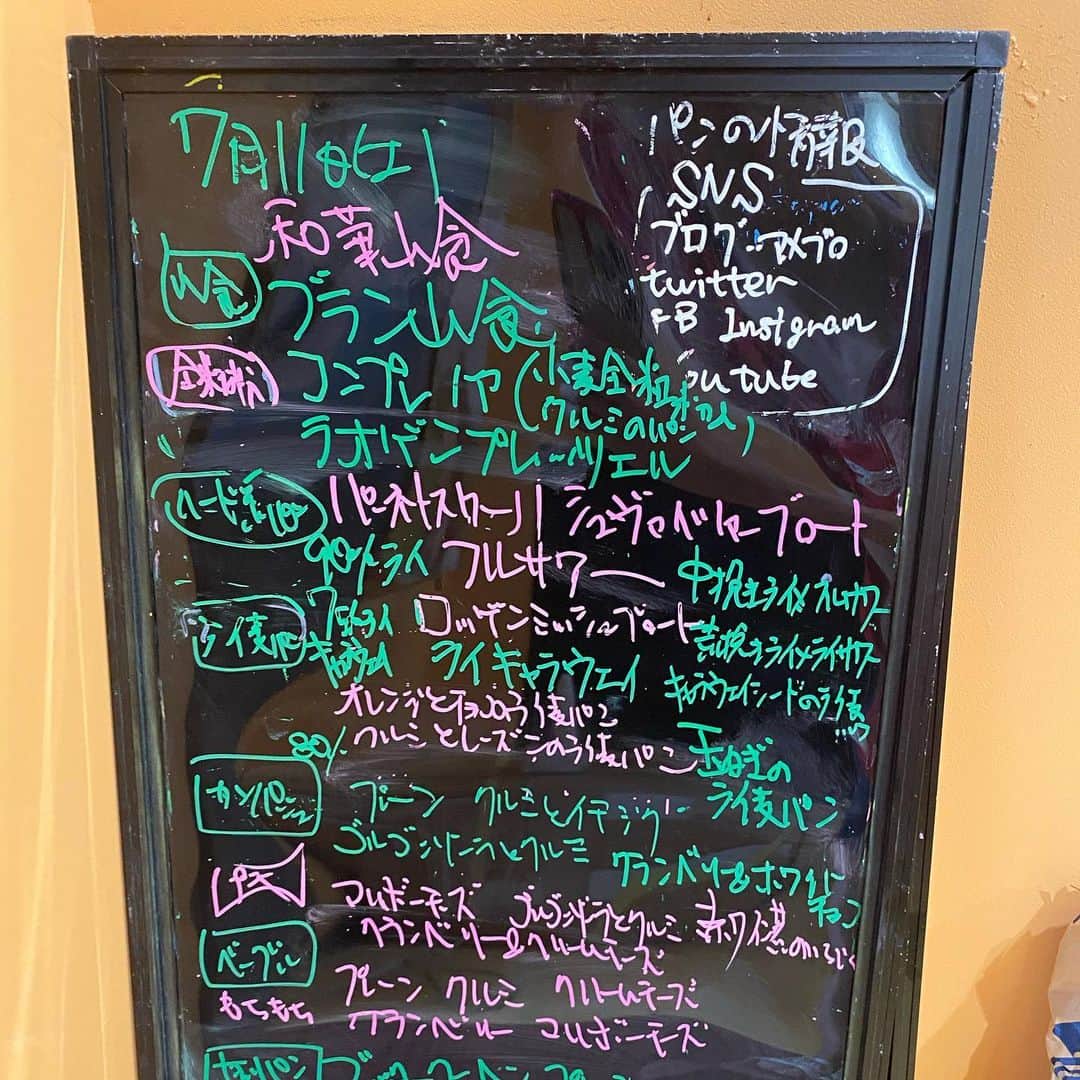 7月11日(土)
パンの情報
SNS
ブログ:アメブロ
twitter
FB Instgram
You tube
和華山食
山食
ブラン山食
全粒粉
コンプレノア(小麦全粒粉
クルミのパン)
ラオゲンブレーツェル
ハード系パン
パーネトスカーノ シュヴァイツァーブロート
90%ライ フルサワー 中挽きライ麦フルサワー
ライ麦パン
70%ライ ロッゲンミッシュブロート 荒挽きライ麦ライサワー
キャラウェイ ライキャラウェイ キャラウェイシードのライ麦パン
オレンジとチョコのライ麦パン
クルミとレーズンのライ麦パン
玉ねぎの
ライ麦パン
80%
カンパーニュ
プレーン クルミとイチジク
ゴルゴンゾーラとクルミ
クランベリー&ホワイト
チョコ
マルボーモーズ ゴルゴンゾーラとクルミ 赤ワイン煮のいちじく
クランベリー&クリームチーズ
ベーグル
もちもち
プレーン クルミ クリームチーズ
クランベリー マルボーモーズ